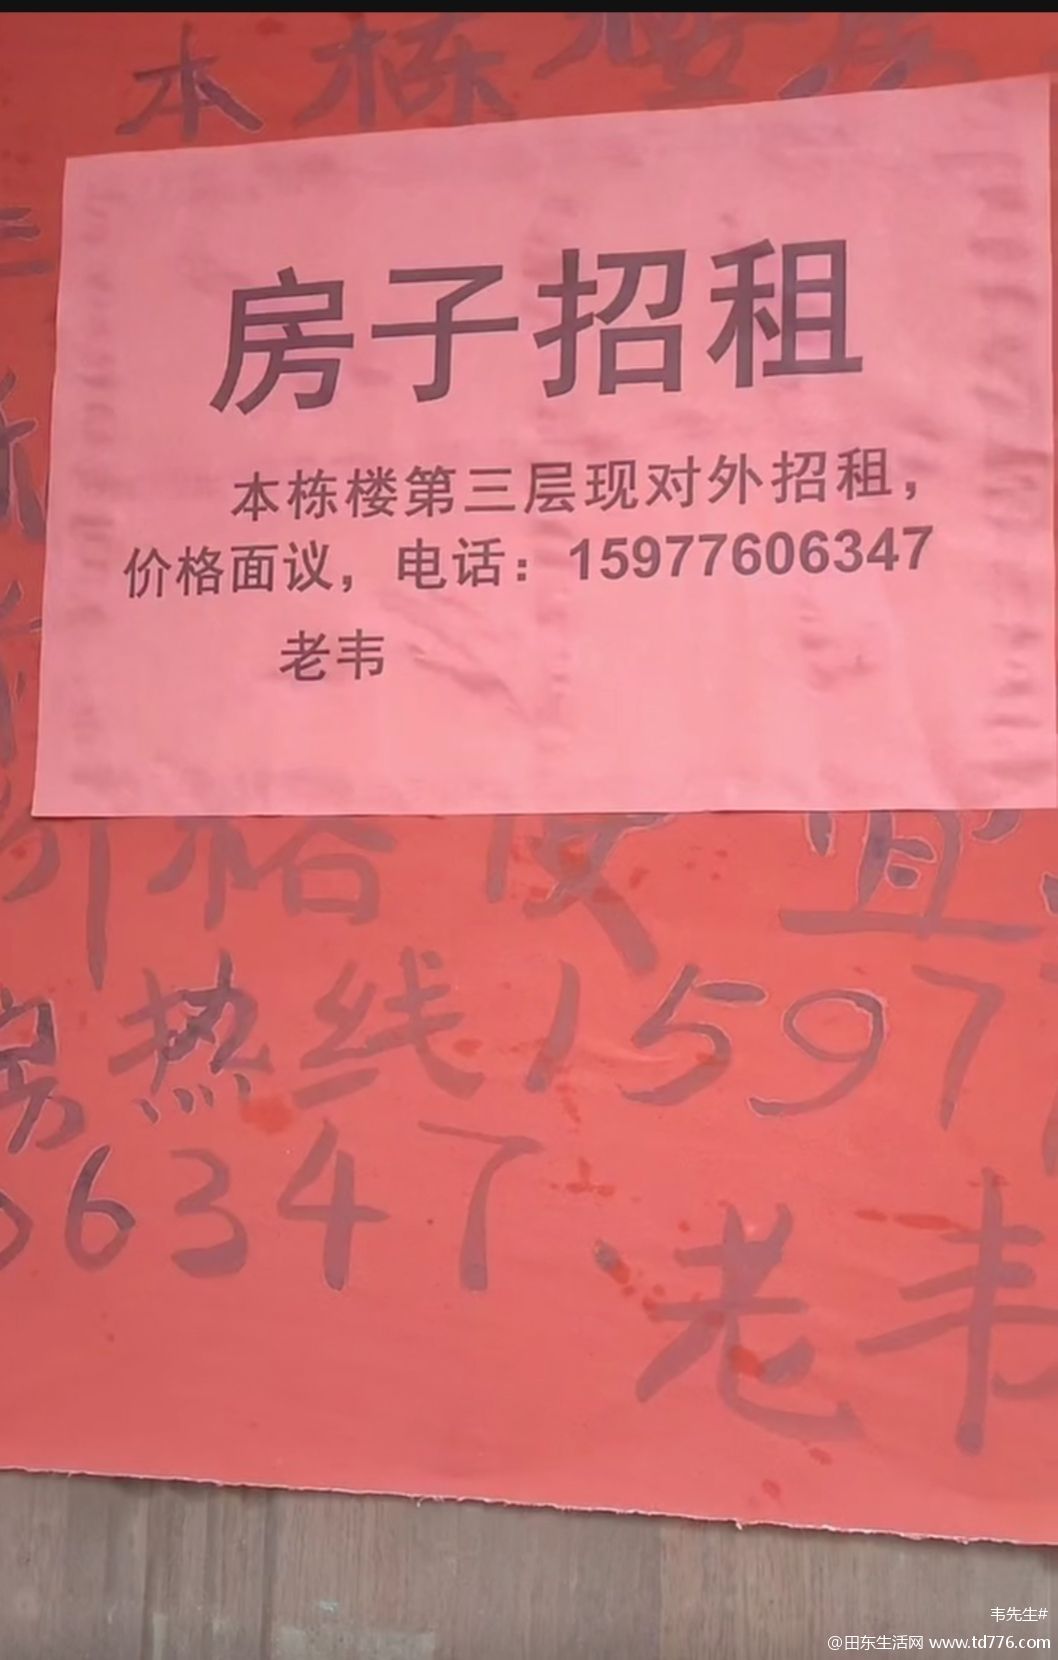 本栋楼房
三
房子招租
本栋楼第三层现对外招租，
价格面议，电话：15977606347
老韦
价格便宜
房热线1597
6347
老韦
韦先生#
@田东生活网 www.td776.com